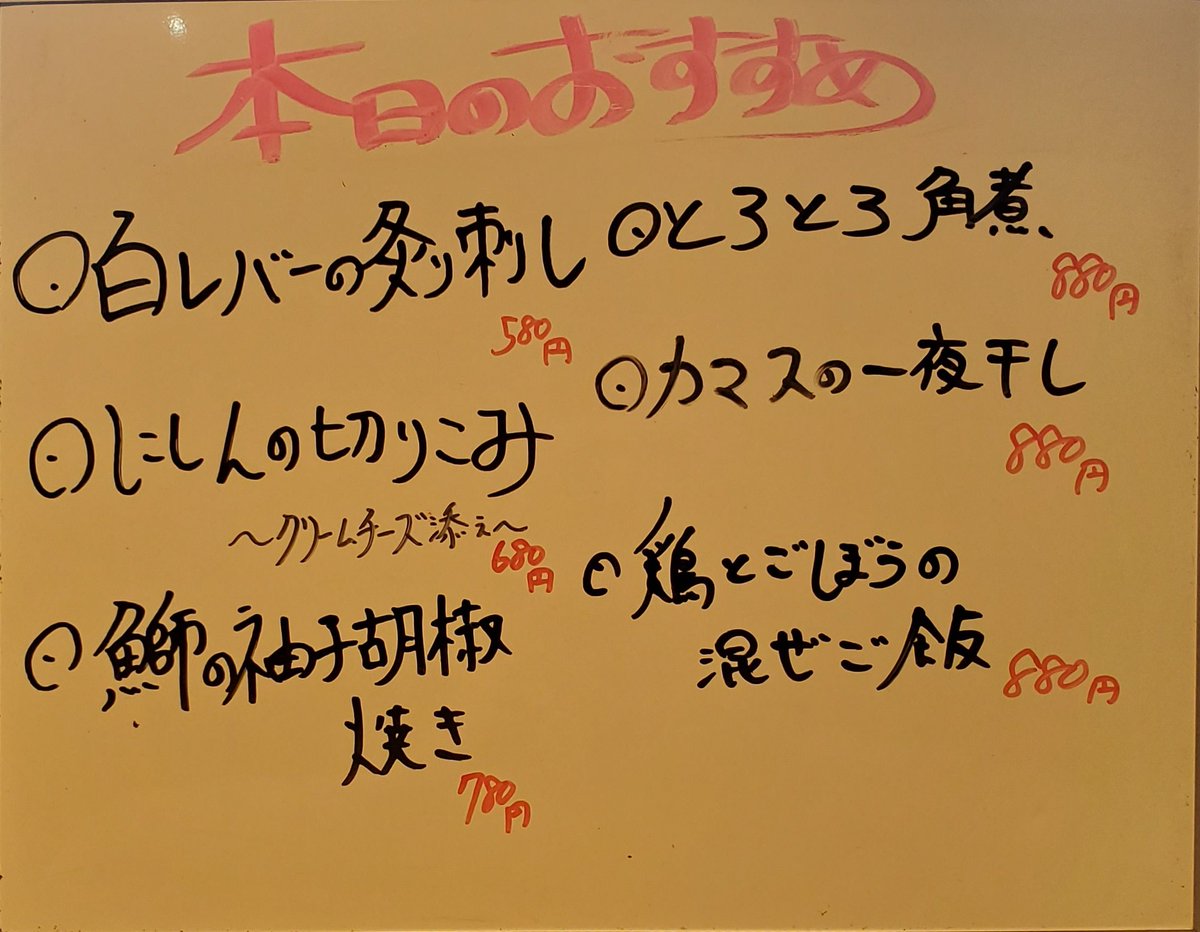 本日のおすすめ
⊙白レバーの炙り刺し
580円
⊙にしんの切りこみ
〜クリームチーズ添え〜
680円
⊙鰤の袖子胡椒
焼き
780円
⊙とろとろ角煮
880円
⊙カマスの一夜干し
880円
⊙鶏とごぼうの
混ぜご飯
880円